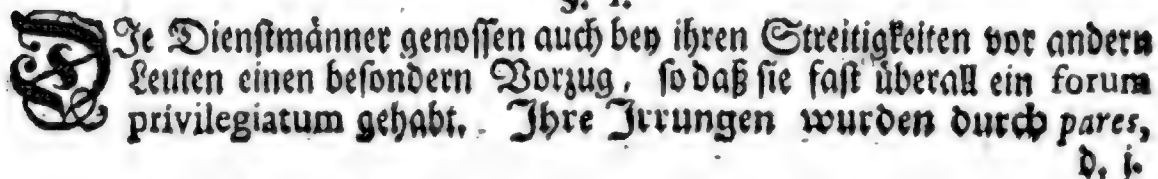 DIe Dienstmänner genossen auch bey ihren Streitigkeiten vor andern
Leuten einen besondern Vorzug, so daß sie fast überall ein forum
privilegiatum gehabt. Ihre Irrungen wurden durch pares,
d. i.